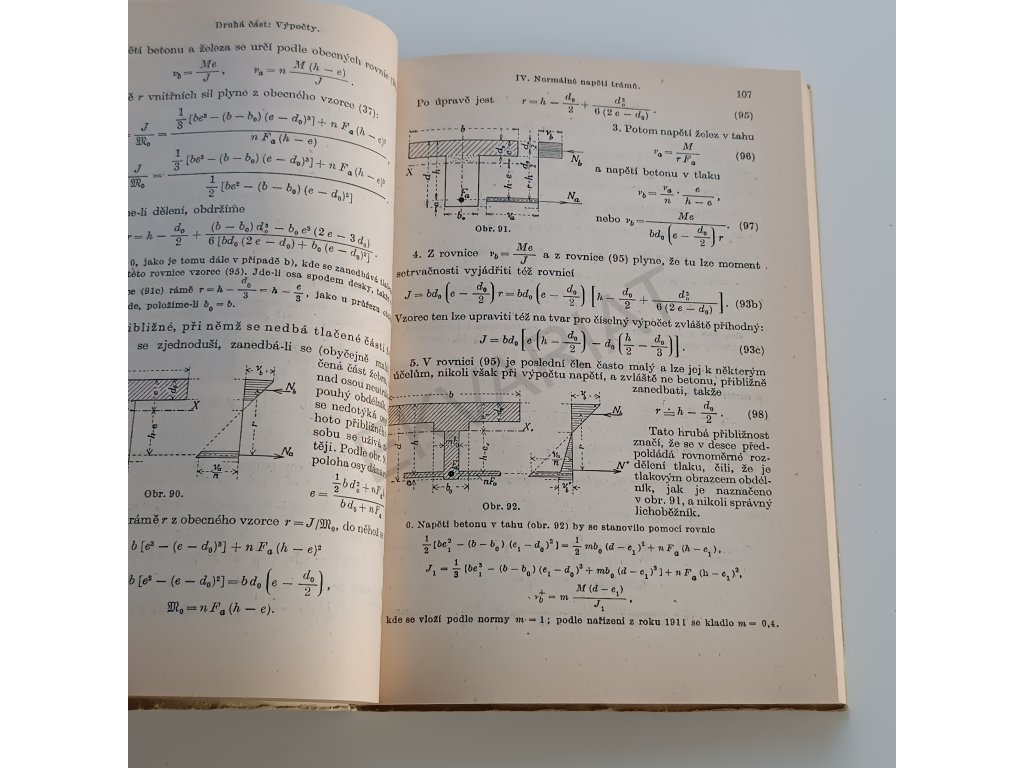 Druhá část: Výpočty.
pětí betonu a železa se určí podle obecných rovnic
ν_b = Me / J, ν_a = n M (h − e) / J .
ě r vnitřních sil plyne z obecného vzorce (37):
J / 𝔐₀ = (1/3 [be³ − (b − b₀) (e − d₀)³] + n F_a (h − e)²) / (n F_a (h − e))
J / 𝔐₀ = (1/3 [be³ − (b − b₀) (e − d₀)³] + n F_a (h − e)²) / (1/2 [be² − (b − b₀) (e − d₀)²])
me-li dělení, obdržíme
r = h − d₀/2 + ((b − b₀) d₀² − b₀ e² (2 e − 3 d₀)) / (6 [bd₀ (2 e − d₀) + b₀ (e − d₀)²]
0, jako je tomu dále v případě b), kde se zanedbává
této rovnice vzorec (95). Jde-li osa spodem desky,
ce (91c) rámě r = h − d₀/3 = h − e/3, jako u průřezu
de, položíme-li b₀ = b.
přibližné, při němž se nedbá tlačené části
se zjednoduší, zanedbá-li se (obyčejně
čená část
nad osou
pouhý
se nedotýká
hoto přibližného
sobu se užívá
těji. Podle obr.
poloha osy
e = (1/2 b d₀² + n F_a / b d₀ + n F_a
Obr. 90.
rámě r z obecného vzorce r = J/𝔐₀, do něhož
b [e³ − (e − d₀)³] + n F_a (h − e)²
b [e² − (e − d₀)²] = b d₀ (e − d₀/2),
𝔐₀ = n F_a (h − e).
IV. Normálné napětí trámů. 107
Po úpravě jest r = h − d₀/2 + d₀² / (6 (2 e − d₀)) . (95)
3. Potom napětí želez v tahu
ν_a = M / (r F_a) (96)
a napětí betonu v tlaku
ν_b = ν_a/n · e/(h − e),
nebo ν_b = Me / (bd₀ (e − d₀/2) r) . (97)
Obr. 91.
4. Z rovnice ν_b = Me/J a z rovnice (95) plyne, že tu lze moment
setrvačnosti vyjádřiti též rovnicí
J = bd₀ (e − d₀/2) r = bd₀ (e − d₀/2) [h − d₀/2 + d₀²/(6(2e − d₀))]. (93b)
Vzorec ten lze upraviti též na tvar pro číselný výpočet zvláště příhodný:
J = bd₀ [e (h − d₀/2) − d₀ (h/2 − d₀/3)]. (93c)
5. V rovnici (95) je poslední člen často malý a lze jej k některým
účelům, nikoli však při výpočtu napětí, a zvláště ne betonu, přibližně
zanedbati, takže
r ≐ h − d₀/2 . (98)
Tato hrubá přibližnost
značí, že se v desce před-
pokládá rovnoměrné roz-
dělení tlaku, čili, že je
tlakovým obrazcem obdél-
ník, jak je naznačeno
v obr. 91, a nikoli správný
lichoběžník.
Obr. 92.
6. Napětí betonu v tahu (obr. 92) by se stanovilo pomocí rovnic
1/2 [be₁² − (b − b₀) (e₁ − d₀)²] = 1/2 mb₀ (d − e₁)² + n F_a (h − e₁),
J₁ = 1/3 [be₁³ − (b − b₀) (e₁ − d₀)³ + mb₀ (d − e₁)³] + n F_a (h − e₁)²,
ν_b⁺ = m M (d − e₁) / J₁ ,
kde se vloží podle normy m = 1; podle nařízení z roku 1911 se kladlo m = 0,4.